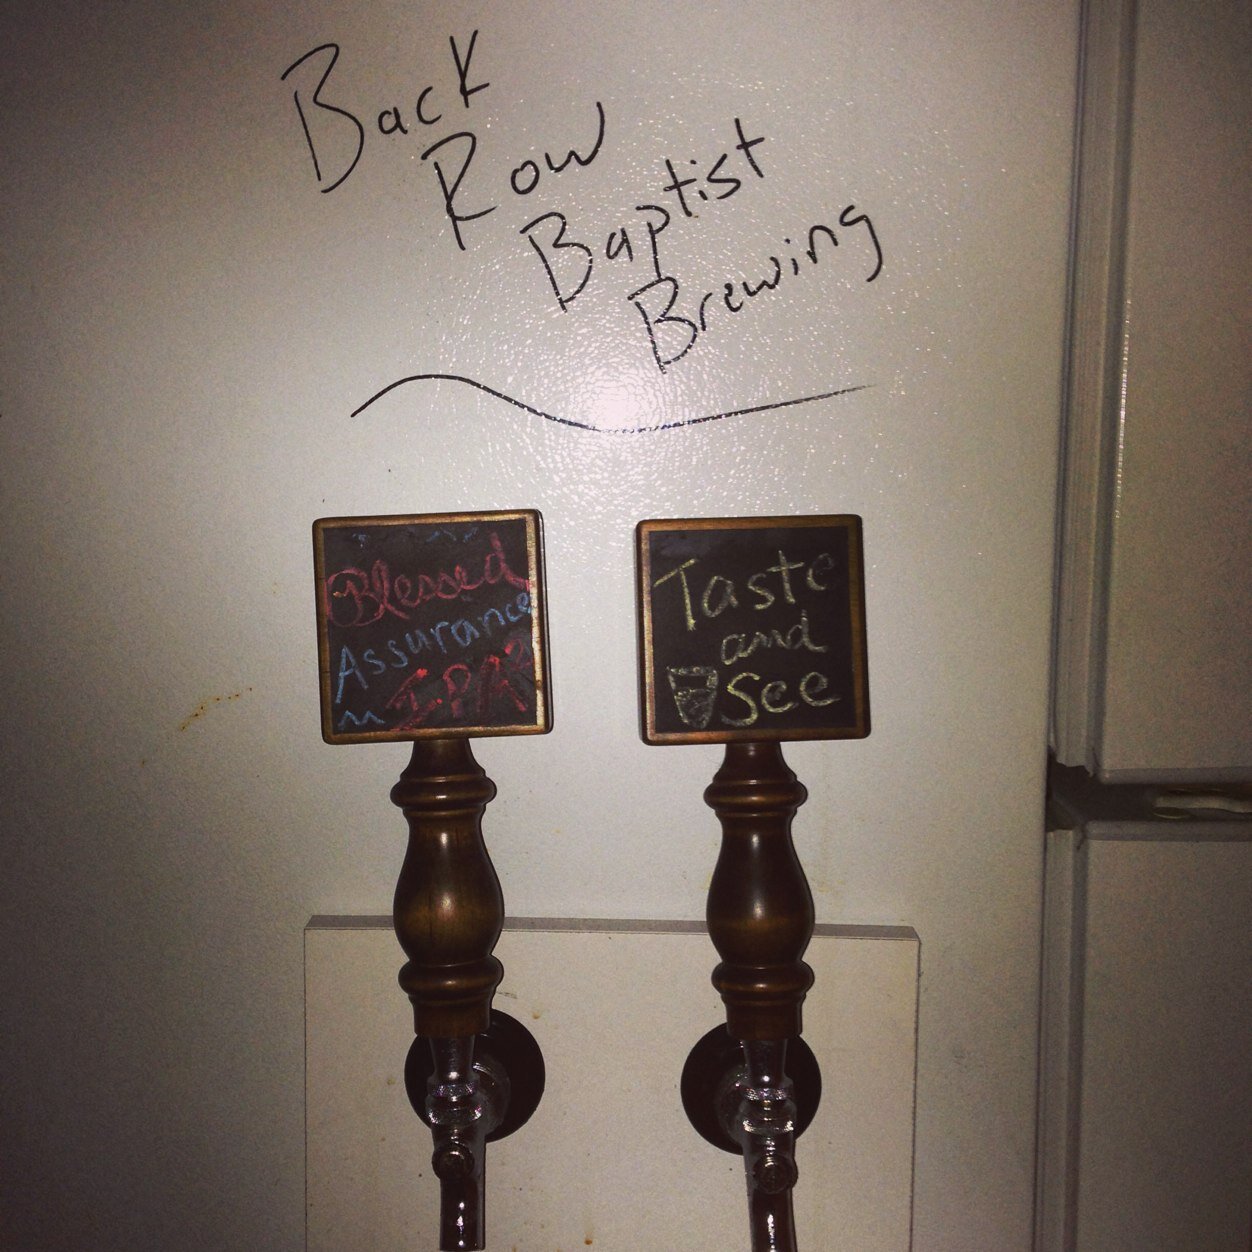 Back
Row
Baptist
Brewing
Blessed
Assurance
I.P.A.
Taste
and
See